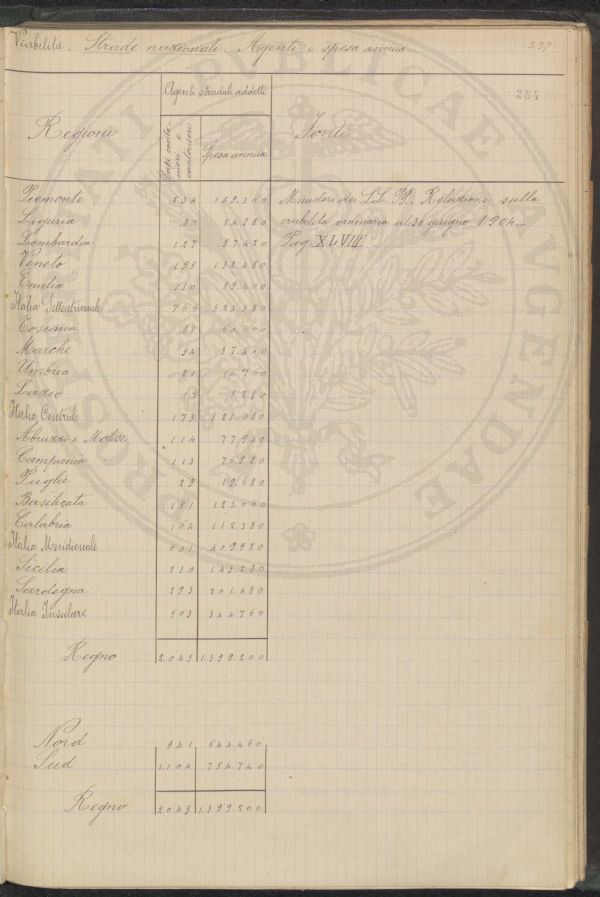 Viabilità. Strade nazionali. Agenti e spesa annua.
337
284
Agenti stradali addetti
Regioni
Capi canto-
nieri e
cantonieri
Spesa annua
Fonti
Piemonte 234 159.300 Ministero dei LL. PP. Relazione sulla
Liguria 80 54.780 viabilità ordinaria al 30 giugno 1904.
Lombardia 127 87.420 Pag XLVIII
Veneto 195 132.480
Emilia 130 89.400
Italia Settentrionale 766 523.380
Toscana 88 60.600
Marche 54 37.440
Umbria 21 14.760
Lazio 12 8.280
Italia Centrale 175 121.080
Abruzzi e Molise 114 77.940
Campania 113 76.920
Puglie 29 19.680
Basilicata 181 123.060
Calabria 164 112.380
Italia Meridionale 601 409.980
Sicilia 210 143.280
Sardegna 293 201.480
Italia Insulare 503 344.760
Regno 2.045 1.399.200
Nord 941 644.460
Sud 1.104 754.740
Regno 2.045 1.399.200